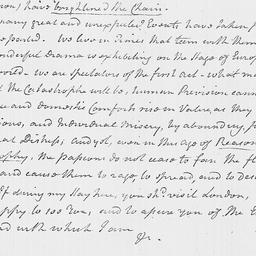 have brightened the Chain.
many great and unexpected Events have taken
We live in Times that teem with them
wonderful Drama is exhibiting on the Stage of Euro
world - we are Spectators of the first Act - what
the Catastrophe will be, human Prevision cann
and domestic Comforts rise in Value, as they
and Individual Misery, by abounding,
Distress; and yet, even in this age of Reason
the passions do not cease to fan the fl
and cause them to rage, to spread, and to
If during my stay here, you shd. visit London,
happy to see you, and to assure you of the
with which I am
&c.